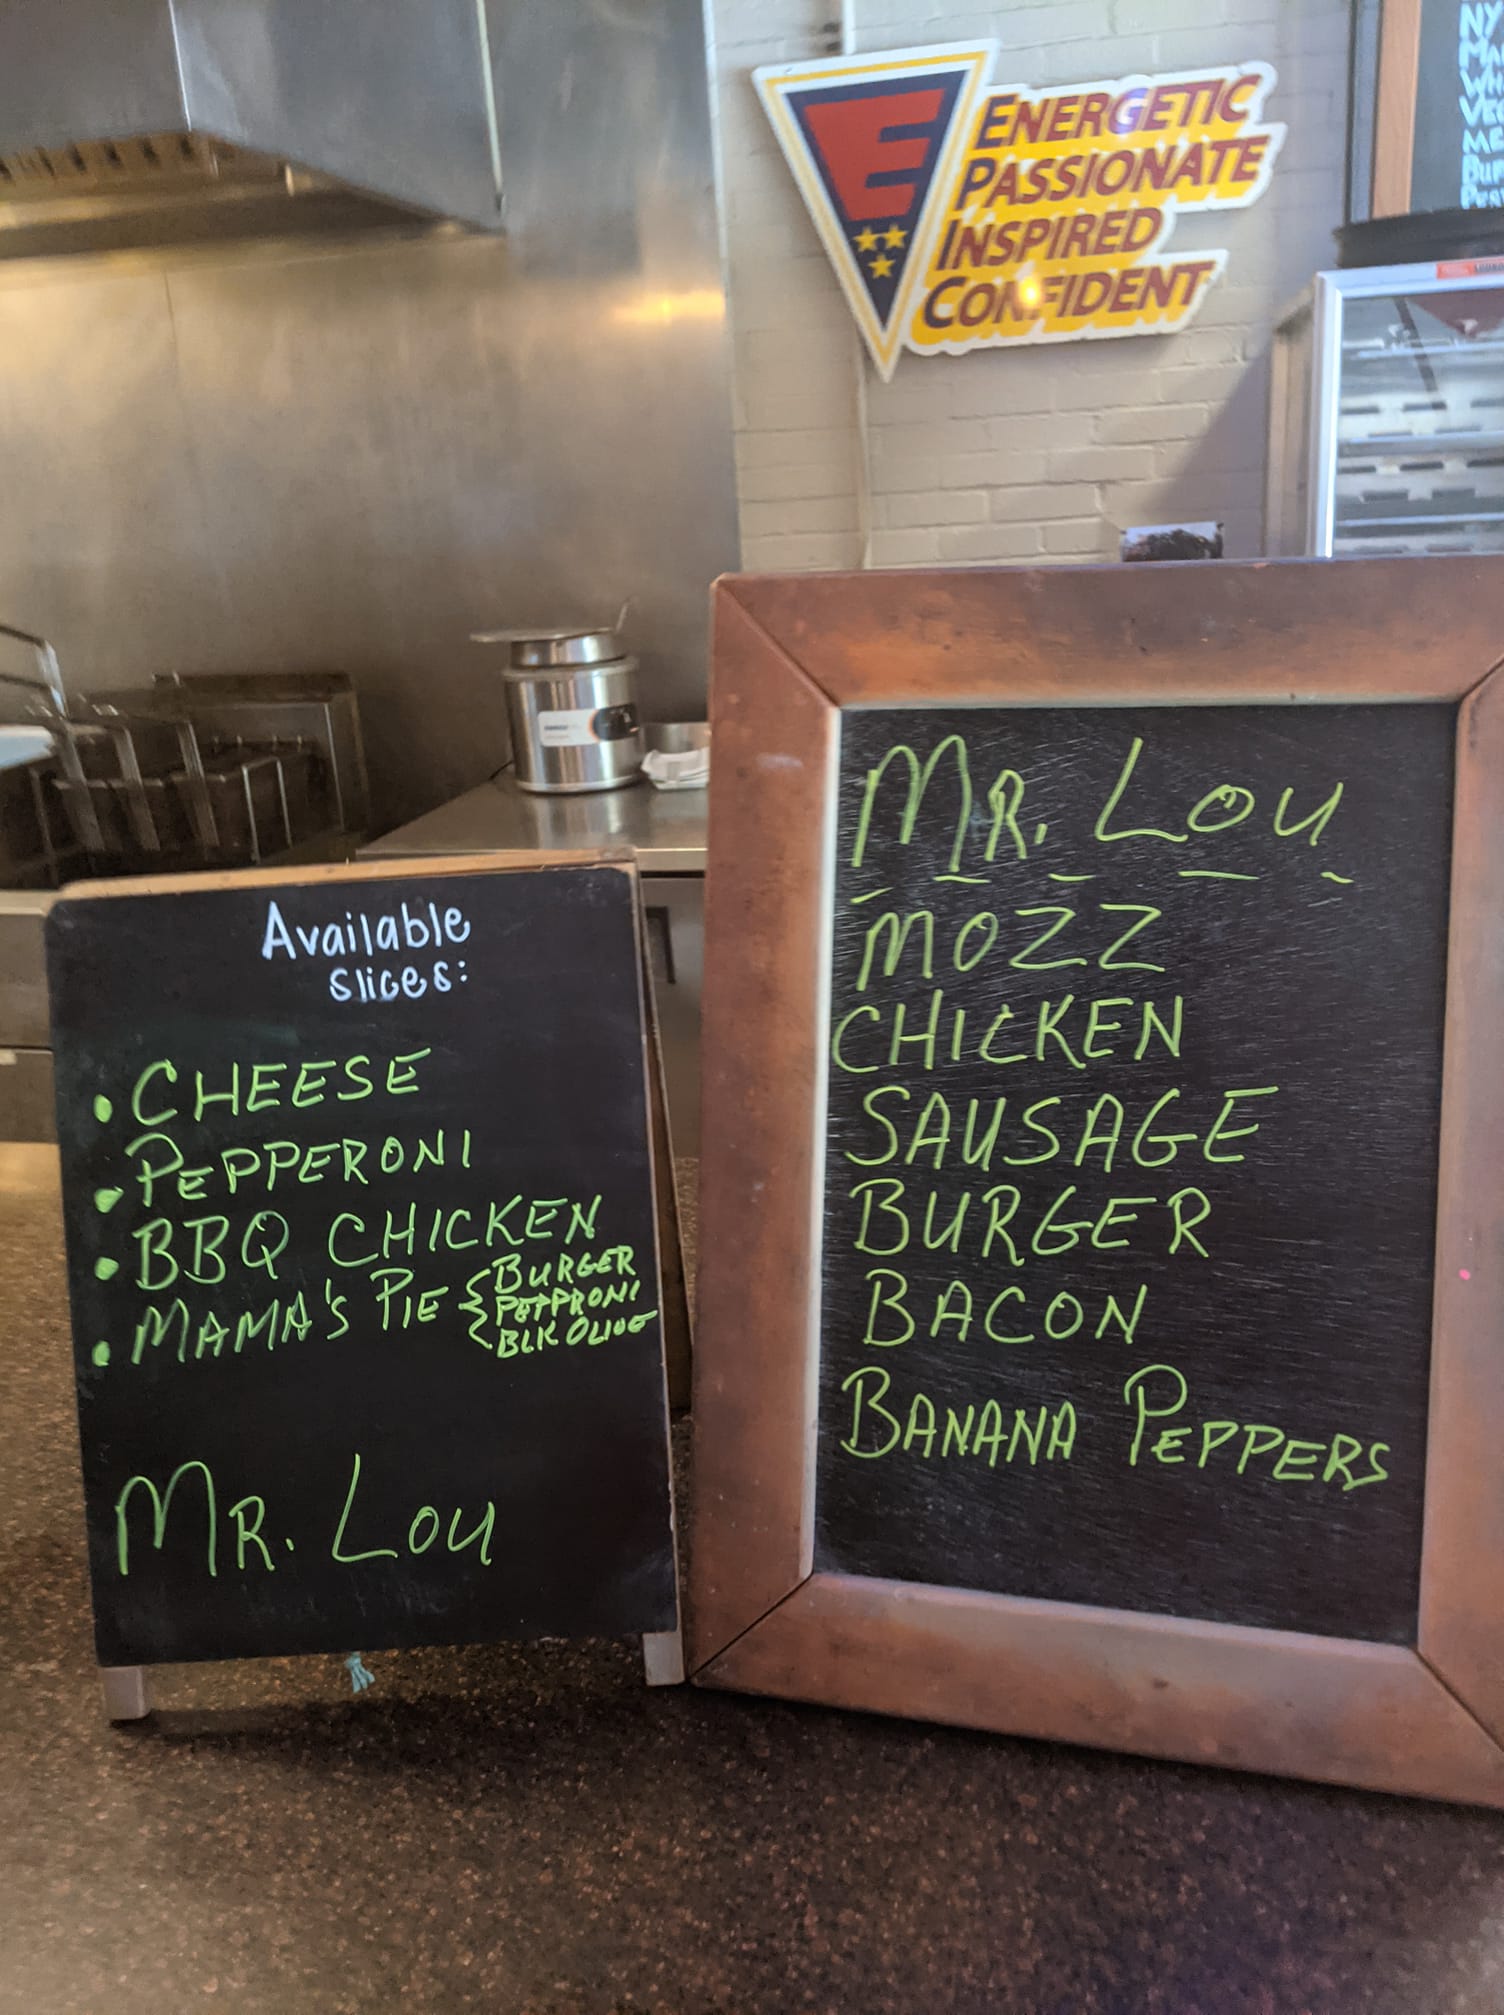 E
ENERGETIC
PASSIONATE
INSPIRED
CONFIDENT
NY
Available
slices:
• CHEESE
• PEPPERONI
• BBQ CHICKEN
• MAMA'S PIE { BURGER
PEPPRONI
BLK OLIVE
MR. LOU
MR. LOU
MOZZ
CHICKEN
SAUSAGE
BURGER
BACON
BANANA PEPPERS